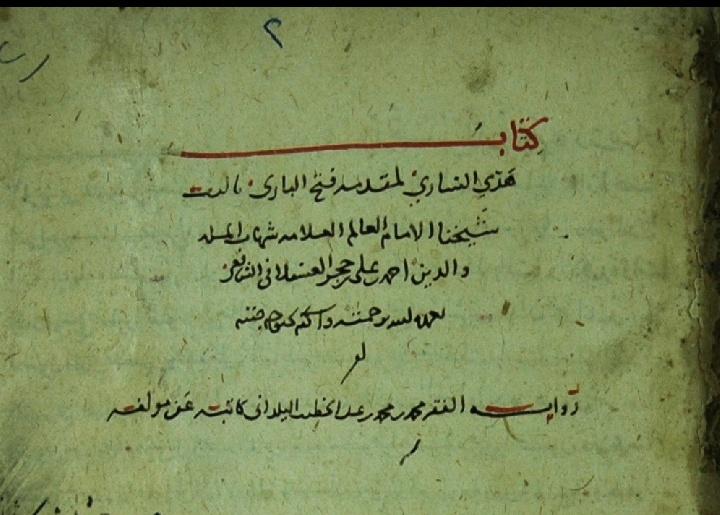 ٢
كتاب
هدي الساري لمقدمه فتح البارى تاليف
شيخنا الامام العالم العلامه شهاب المله
والدين احمد بن على بن حجر العسقلانى الشافعى
تغمده الله برحمته واسكنه بحبوحه جنته
روايه الفقير محمد بن محمد بن الخطيب كاتبه عن مولفه